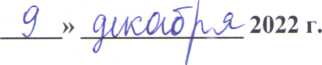 9 » декабря 2022 г.